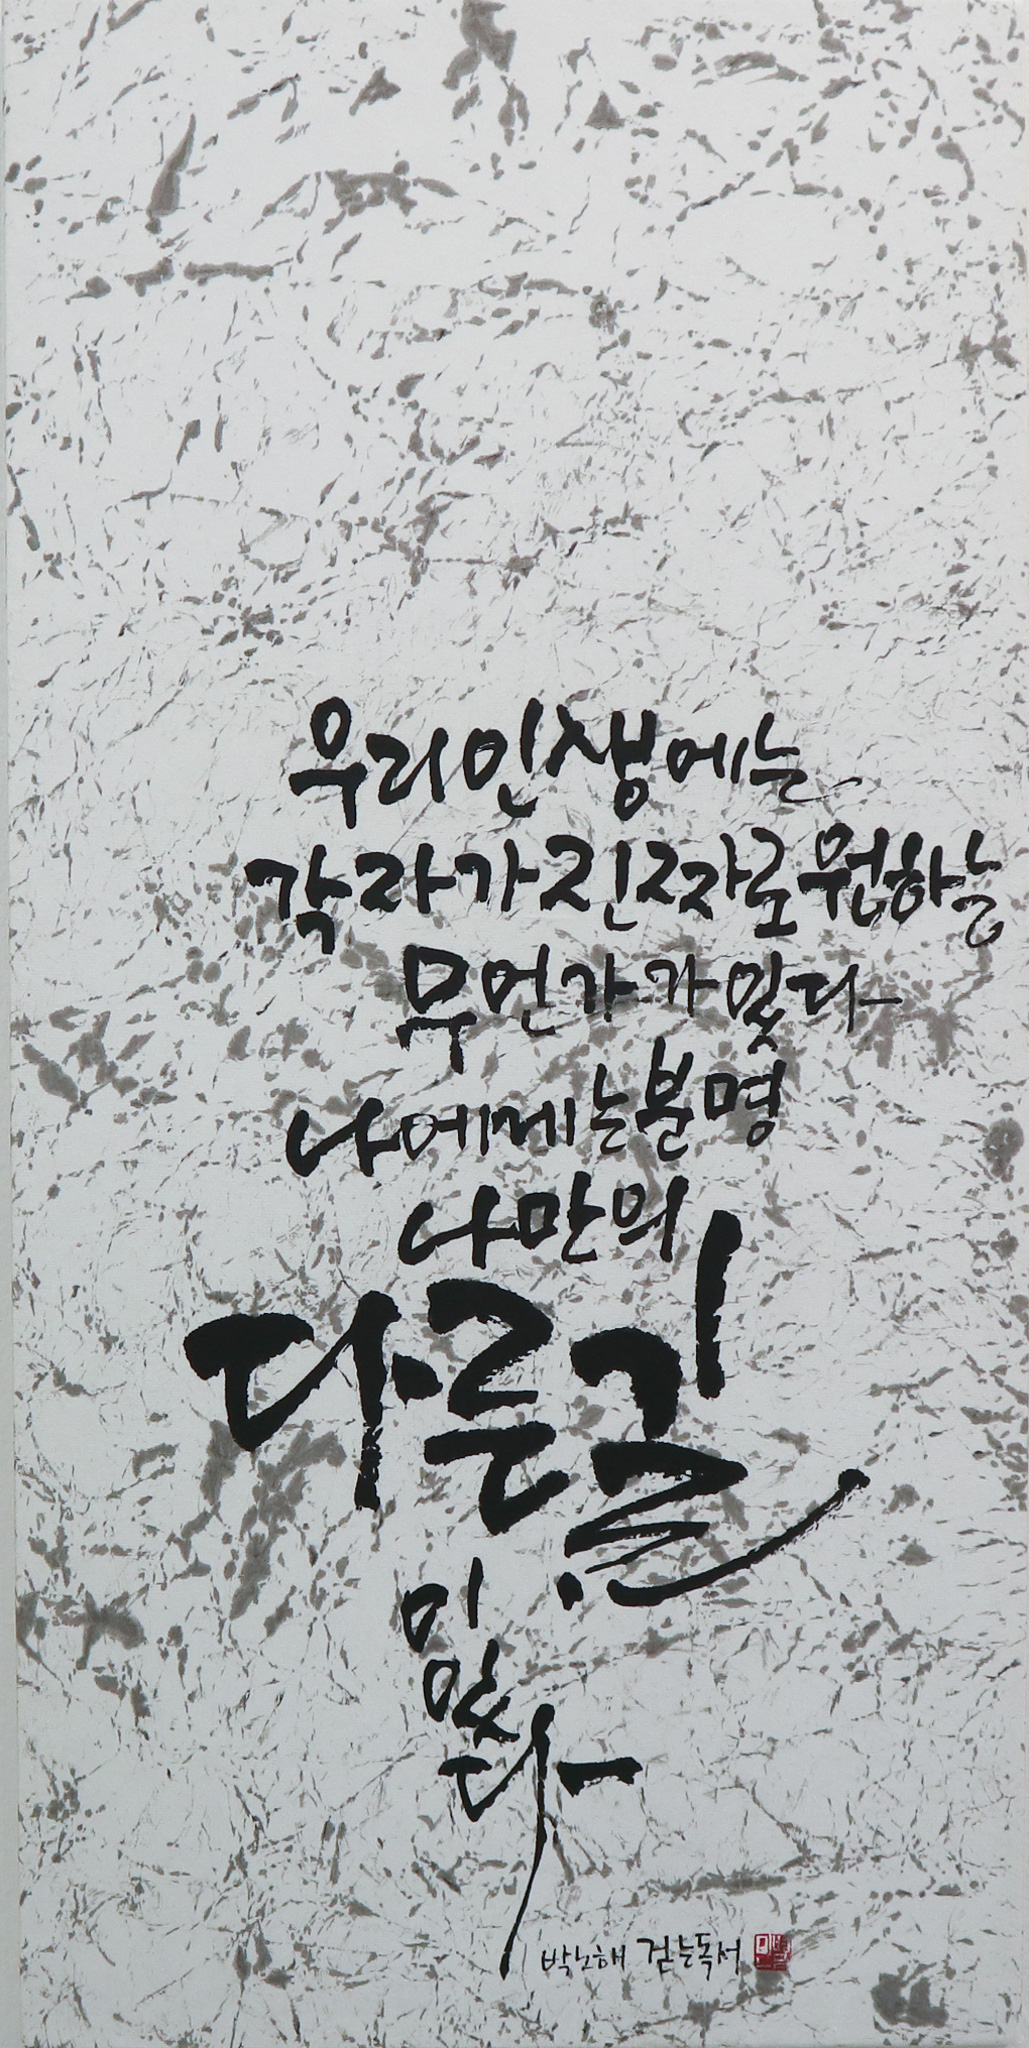 우리 인생에는
각자가 진짜로 원하는
무언가가 있다
나에게는 분명
나만의
다른길
이
있
다
박노해 걷는독서